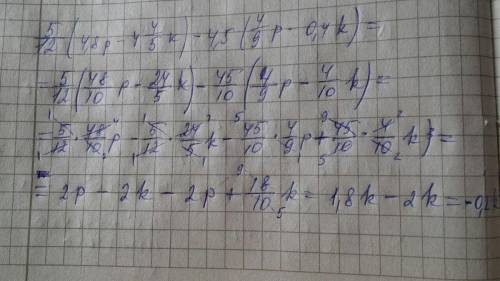 5/12 (4,8p - 4 4/5 k) - 4,5 (4/9 p - 0,4k) =
= 5/12 (48/10 p - 24/5 k) - 45/10 (4/9 p - 4/10 k) =
= 5/12 · 48/10 p - 5/12 · 24/5 k - 45/10 · 4/9 p + 45/10 · 4/10 k) =
= 2p - 2k - 2p + 18/10 k = 1,8k - 2k = -0,2